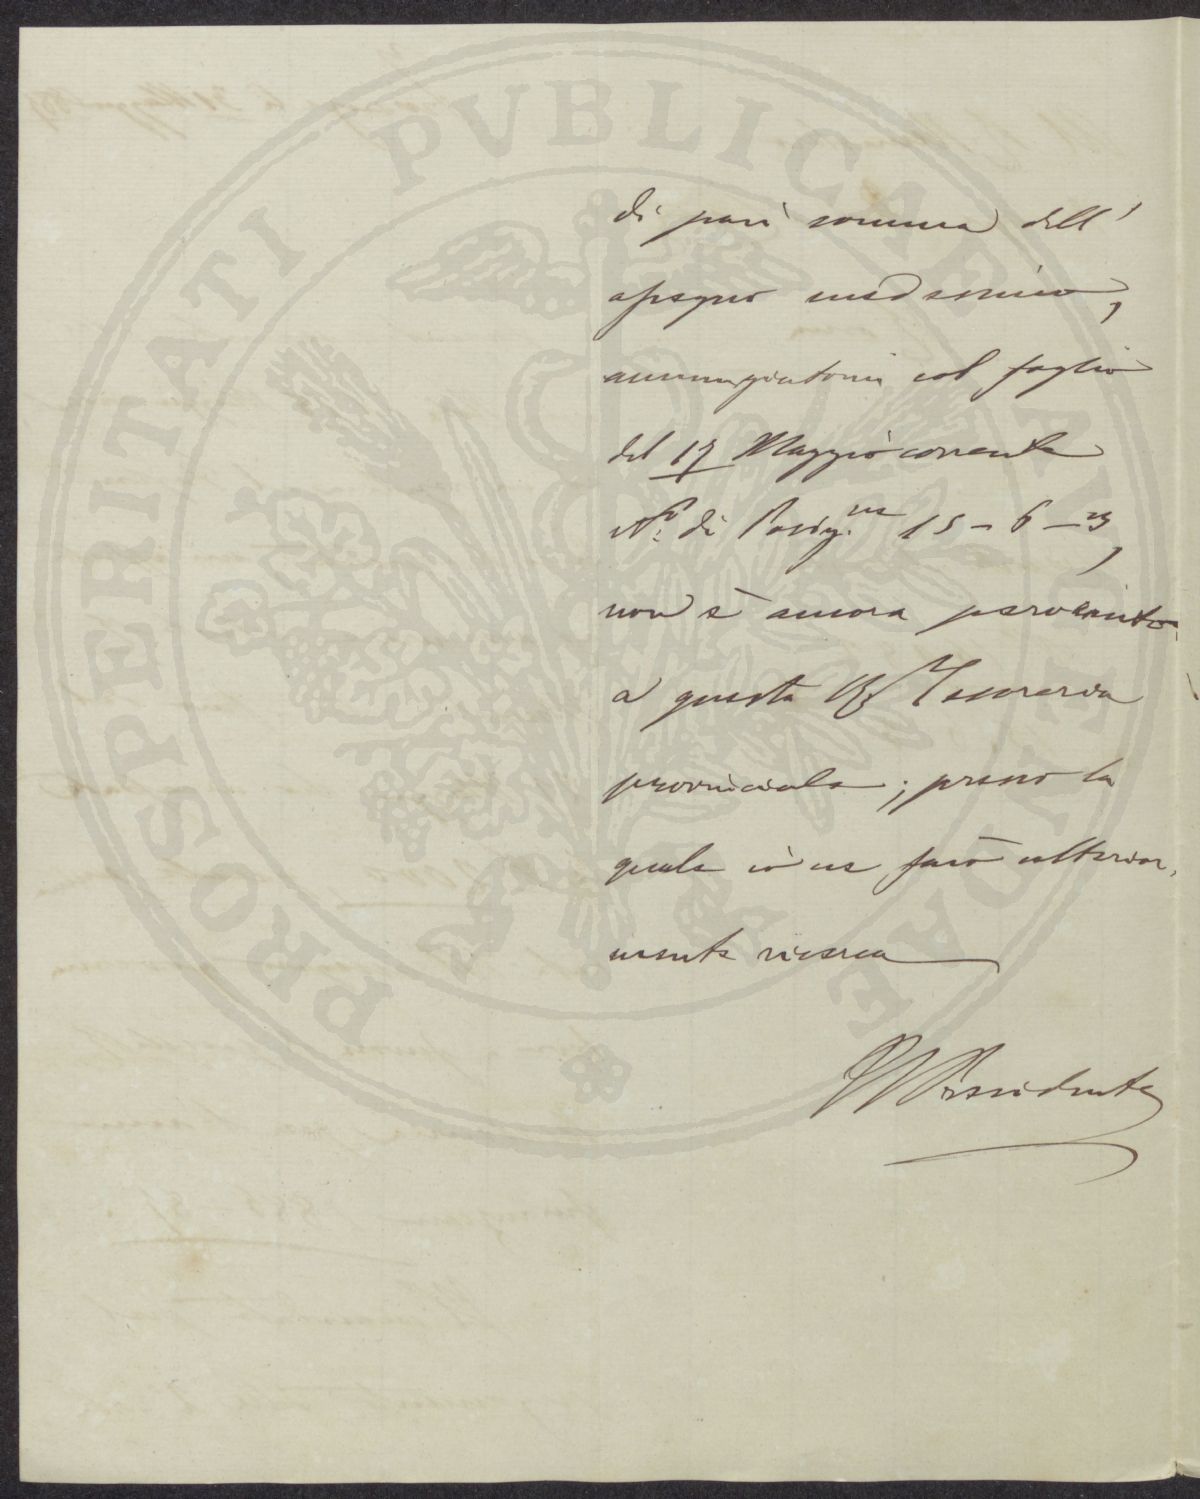 PROSPERITATI PUBLICAE AUGENDAE
di pari somma dell'
assegno medesimo,
annunziatomi col foglio
del 17 Maggio corrente
N.º di Posiz.ne 15-6-3,
non è ancora pervenuto
a questa R. Tesoreria
provinciale; presso la
quale io ne farò ulterior,
mente ricerca
Il Presidente